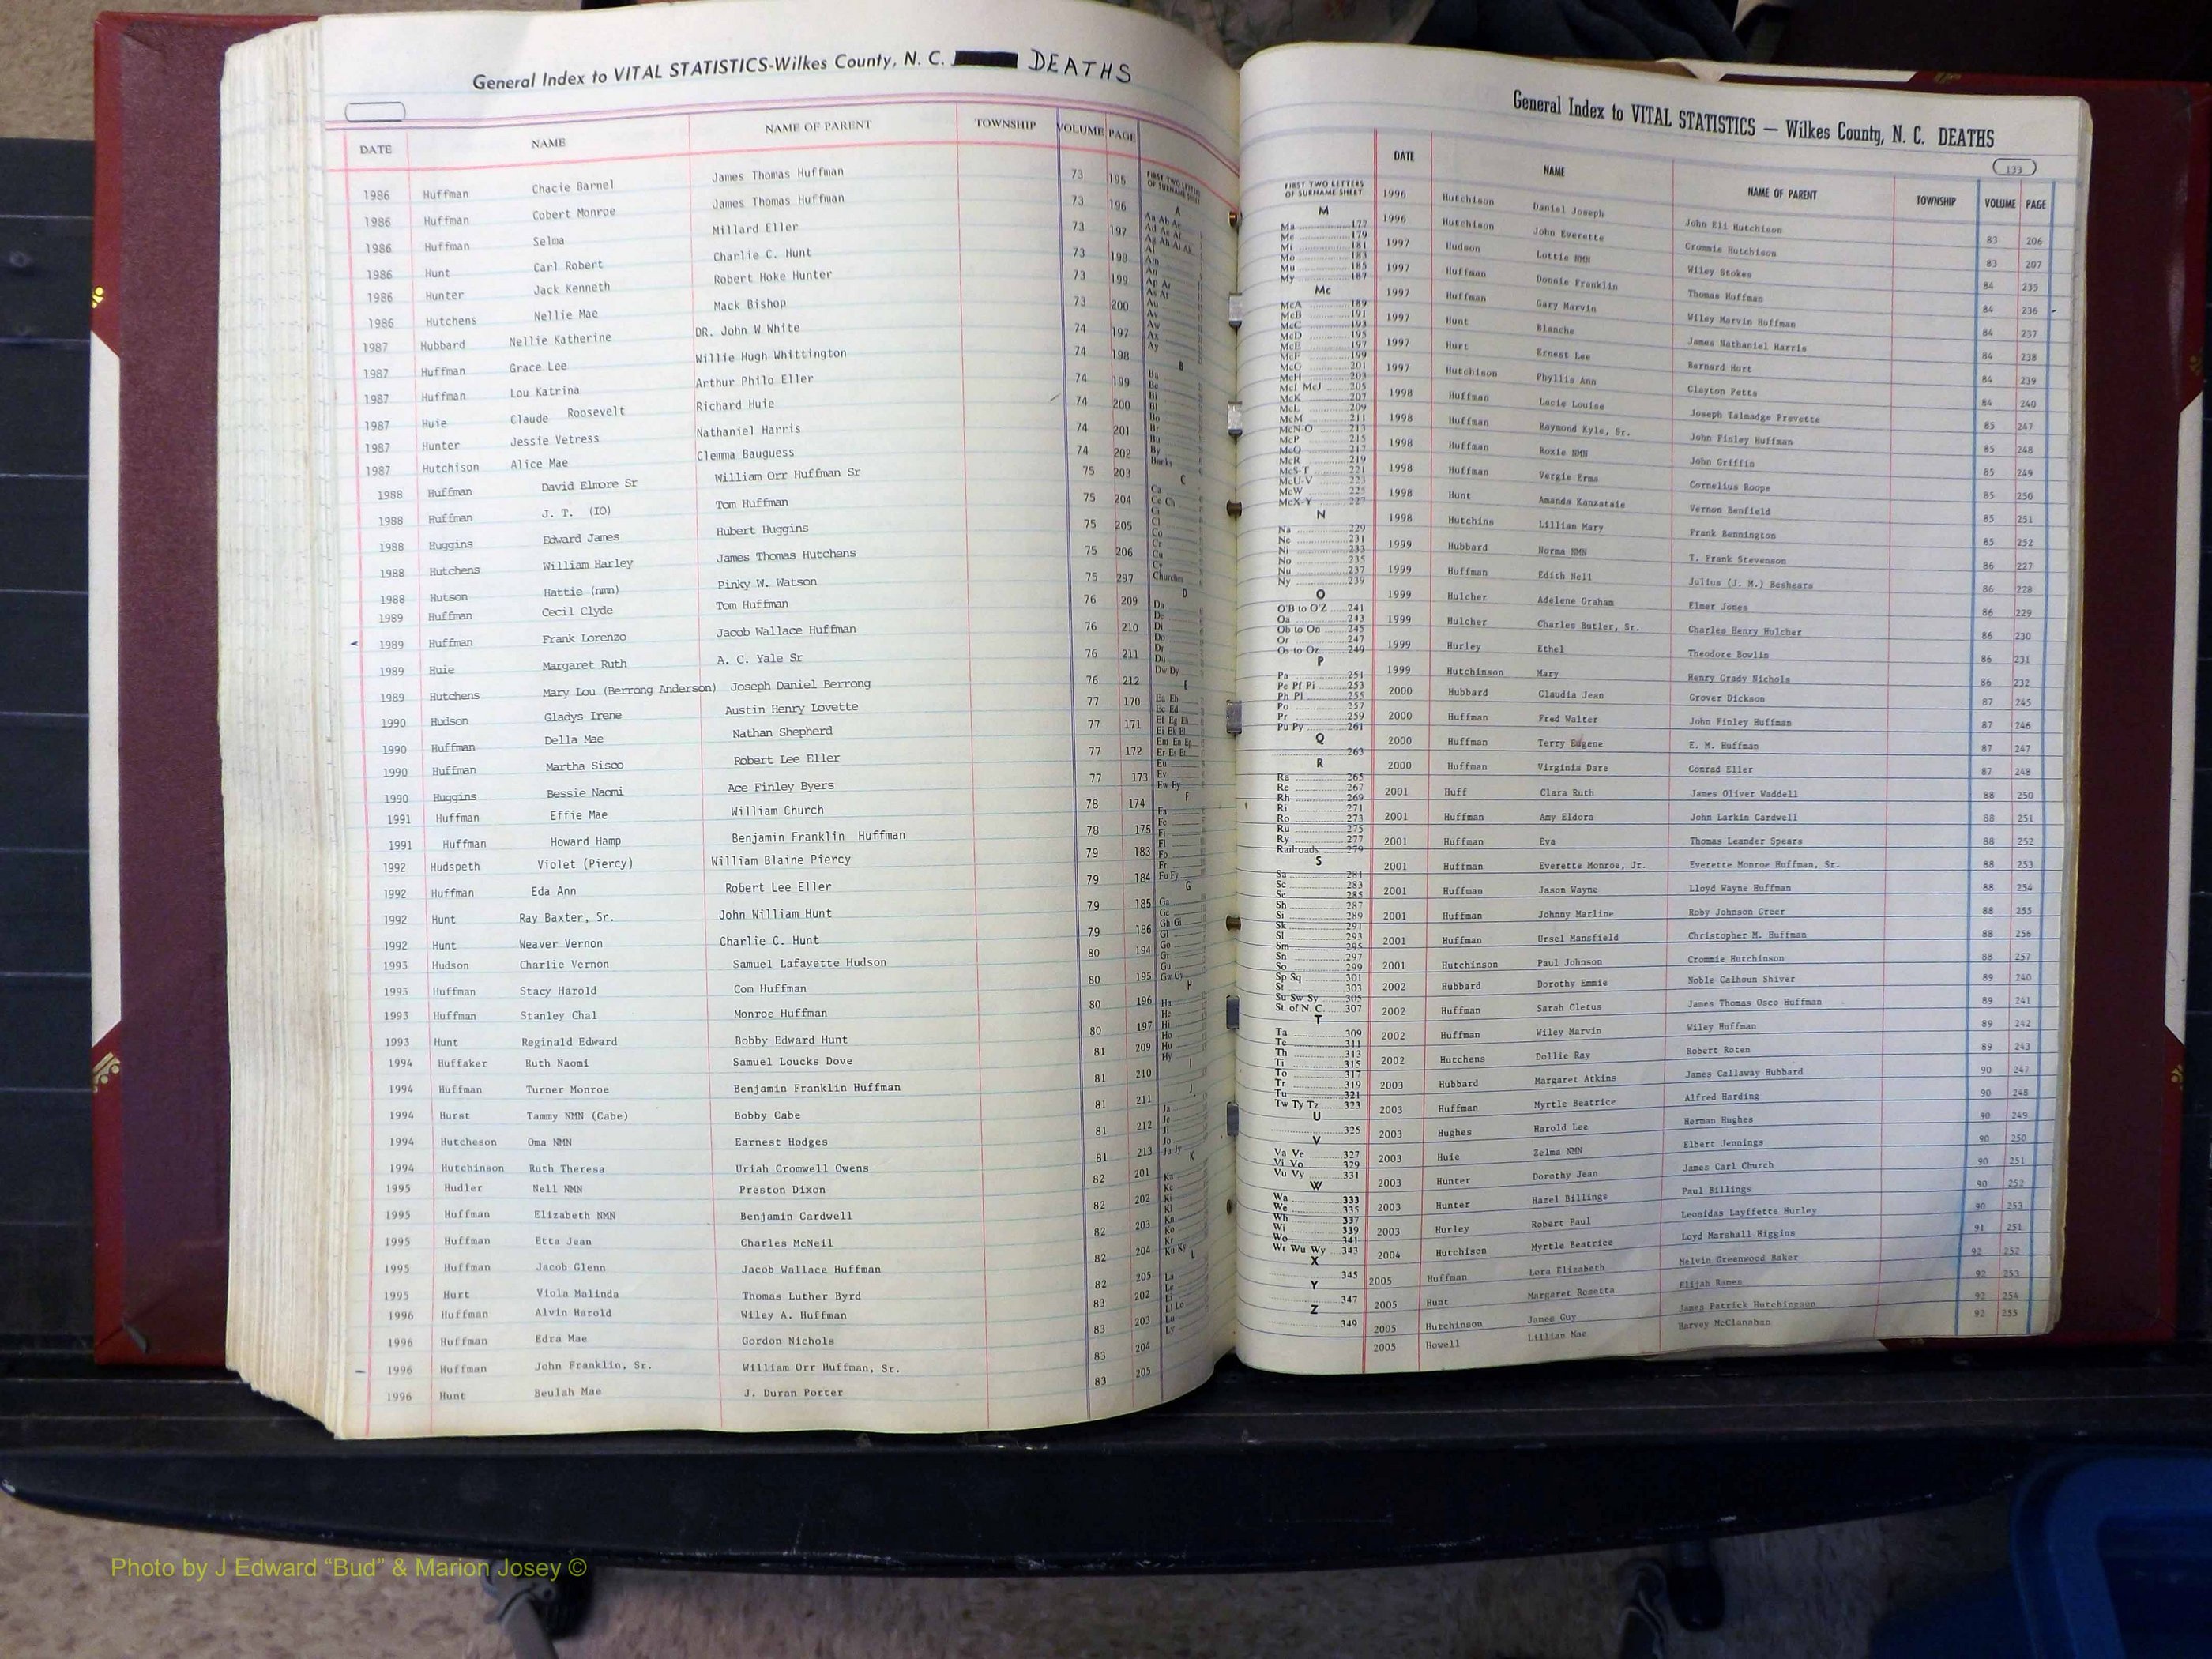 General Index to VITAL STATISTICS-Wilkes County, N. C. DEATHS
DATE NAME NAME OF PARENT TOWNSHIP VOLUME PAGE
1986 Huffman Chacie Barnel James Thomas Huffman 73 195
1986 Huffman Cobert Monroe James Thomas Huffman 73 196
1986 Huffman Selma Millard Eller 73 197
1986 Hunt Carl Robert Charlie C. Hunt 73 198
1986 Hunter Jack Kenneth Robert Hoke Hunter 73 199
1986 Hutchens Nellie Mae Mack Bishop 73 200
1987 Hubbard Nellie Katherine DR. John W White 74 197
1987 Huffman Grace Lee Willie Hugh Whittington 74 198
1987 Huffman Lou Katrina Arthur Philo Eller 74 199
1987 Huie Claude Roosevelt Richard Huie 74 200
1987 Hunter Jessie Vetress Nathaniel Harris 74 201
1987 Hutchison Alice Mae Clemma Bauguess 74 202
1988 Huffman David Elmore Sr William Orr Huffman Sr 75 203
1988 Huffman J. T. (IO) Tom Huffman 75 204
1988 Huggins Edward James Hubert Huggins 75 205
1988 Hutchens William Harley James Thomas Hutchens 75 206
1988 Hutson Hattie (nmn) Pinky W. Watson 75 297
1989 Huffman Cecil Clyde Tom Huffman 76 209
1989 Huffman Frank Lorenzo Jacob Wallace Huffman 76 210
1989 Huie Margaret Ruth A. C. Yale Sr 76 211
1989 Hutchens Mary Lou (Berrong Anderson) Joseph Daniel Berrong 76 212
1990 Hudson Gladys Irene Austin Henry Lovette 77 170
1990 Huffman Della Mae Nathan Shepherd 77 171
1990 Huffman Martha Sisco Robert Lee Eller 77 172
1990 Huggins Bessie Naomi Ace Finley Byers 77 173
1991 Huffman Effie Mae William Church 78 174
1991 Huffman Howard Hamp Benjamin Franklin Huffman 78 175
1992 Hudspeth Violet (Piercy) William Blaine Piercy 79 183
1992 Huffman Eda Ann Robert Lee Eller 79 184
1992 Hunt Ray Baxter, Sr. John William Hunt 79 185
1992 Hunt Weaver Vernon Charlie C. Hunt 79 186
1993 Hudson Charlie Vernon Samuel Lafayette Hudson 80 194
1993 Huffman Stacy Harold Com Huffman 80 195
1993 Huffman Stanley Chal Monroe Huffman 80 196
1993 Hunt Reginald Edward Bobby Edward Hunt 80 197
1994 Huffaker Ruth Naomi Samuel Loucks Dove 81 209
1994 Huffman Turner Monroe Benjamin Franklin Huffman 81 210
1994 Hurst Tammy NMN (Cabe) Bobby Cabe 81 211
1994 Hutcheson Oma NMN Earnest Hodges 81 212
1994 Hutchinson Ruth Theresa Uriah Cromwell Owens 81 213
1995 Hudler Nell NMN Preston Dixon 82 201
1995 Huffman Elizabeth NMN Benjamin Cardwell 82 202
1995 Huffman Etta Jean Charles McNeil 82 203
1995 Huffman Jacob Glenn Jacob Wallace Huffman 82 204
1995 Hurt Viola Malinda Thomas Luther Byrd 82 205
1996 Huffman Alvin Harold Wiley A. Huffman 83 202
1996 Huffman Edra Mae Gordon Nichols 83 203
1996 Huffman John Franklin, Sr. William Orr Huffman, Sr. 83 204
1996 Hunt Beulah Mae J. Duran Porter 83 205
FIRST TWO LETTERS
OF SURNAME SHEET
A
B
Banks
C
Churches
D
E
F
G
H
I
J
K
L
General Index to VITAL STATISTICS — Wilkes County, N. C. DEATHS
133
DATE NAME NAME OF PARENT TOWNSHIP VOLUME PAGE
1996 Hutchison Daniel Joseph John Eli Hutchison 83 206
1996 Hutchison John Everette Crommie Hutchison 83 207
1997 Hudson Lottie NMN Wiley Stokes 84 235
1997 Huffman Donnie Franklin Thomas Huffman 84 236
1997 Huffman Gary Marvin Wiley Marvin Huffman 84 237
1997 Hunt Blanche James Nathaniel Harris 84 238
1997 Hurt Ernest Lee Bernard Hurt 84 239
1997 Hutchison Phyllis Ann Clayton Potts 84 240
1998 Huffman Lacie Louise Joseph Talmadge Prevette 85 247
1998 Huffman Raymond Kyle, Sr. John Finley Huffman 85 248
1998 Huffman Roxie NMN John Griffin 85 249
1998 Huffman Vergie Erma Cornelius Roope 85 250
1998 Hunt Amanda Kanzataie Vernon Benfield 85 251
1998 Hutchins Lillian Mary Frank Bennington 85 252
1999 Hubbard Norma NMN T. Frank Stevenson 86 227
1999 Huffman Edith Nell Julius (J. M.) Beshears 86 228
1999 Hulcher Adelene Graham Elmer Jones 86 229
1999 Hulcher Charles Butler, Sr. Charles Henry Hulcher 86 230
1999 Hurley Ethel Theodore Bowlin 86 231
1999 Hutchinson Mary Henry Grady Nichols 86 232
2000 Hubbard Claudia Jean Grover Dickson 87 245
2000 Huffman Fred Walter John Finley Huffman 87 246
2000 Huffman Terry Eugene E. M. Huffman 87 247
2000 Huffman Virginia Dare Conrad Eller 87 248
2001 Huff Clara Ruth James Oliver Waddell 88 250
2001 Huffman Amy Eldora John Larkin Cardwell 88 251
2001 Huffman Eva Thomas Leander Spears 88 252
2001 Huffman Everette Monroe, Jr. Everette Monroe Huffman, Sr. 88 253
2001 Huffman Jason Wayne Lloyd Wayne Huffman 88 254
2001 Huffman Johnny Marline Roby Johnson Greer 88 255
2001 Huffman Ursel Mansfield Christopher M. Huffman 88 256
2001 Hutchinson Paul Johnson Crommie Hutchinson 88 257
2002 Hubbard Dorothy Emmie Noble Calhoun Shiver 89 240
2002 Huffman Sarah Cletus James Thomas Osco Huffman 89 241
2002 Huffman Wiley Marvin Wiley Huffman 89 242
2002 Hutchens Dollie Ray Robert Roten 89 243
2003 Hubbard Margaret Atkins James Callaway Hubbard 90 247
2003 Huffman Myrtle Beatrice Alfred Harding 90 248
2003 Hughes Harold Lee Herman Hughes 90 249
2003 Huie Zelma NMN Elbert Jennings 90 250
2003 Hunter Dorothy Jean James Carl Church 90 251
2003 Hunter Hazel Billings Paul Billings 90 252
2003 Hurley Robert Paul Leonidas Layffette Hurley 90 253
2004 Hutchison Myrtle Beatrice Loyd Marshall Higgins 91 251
2005 Huffman Lora Elizabeth Melvin Greenwood Baker 92 252
2005 Hunt Margaret Rosetta Elijah Ranes 92 253
2005 Hutchinson Janee Guy James Patrick Hutchingson 92 254
2005 Howell Lillian Mae Harvey McClanahan 92 255
FIRST TWO LETTERS
OF SURNAME SHEET
M
Ma 177
Mc 179
Mi 181
Mo 183
Mu 185
My 187
Mc
McA 189
McB 191
McC 193
McD 195
McE 197
McF 199
McG 201
McH 203
McI McJ 205
McK 207
McL 209
McM 211
McN-O 213
McP 215
McQ 217
McR 219
McS-T 221
McU-V 223
McW 225
McX-Y 227
N
Na 229
Ne 231
Ni 233
No 235
Nu 237
Ny 239
O
O'B to O'Z 241
Oa 243
Ob to On 245
Or 247
Os to Oz 249
P
Pa 251
Pe Pf Pi 253
Ph Pl 255
Po 257
Pr 259
Pu Py 261
Q
263
R
Ra 265
Re 267
Rh 269
Ri 271
Ro 273
Ru 275
Ry 277
Railroads 279
S
Sa 281
Sc 283
Se 285
Sh 287
Si 289
Sk 291
Sl 293
Sm 295
Sn 297
So 299
Sp Sq 301
St 303
Su Sw Sy 305
St. of N. C. 307
T
Ta 309
Te 311
Th 313
Ti 315
To 317
Tr 319
Tu 321
Tw Ty Tz 323
U
325
V
Va Ve 327
Vi Vo 329
Vu Vy 331
W
Wa 333
We 335
Wh 337
Wi 339
Wo 341
Wr Wu Wy 343
X
345
Y
347
Z
349
Photo by J Edward “Bud” & Marion Josey ©